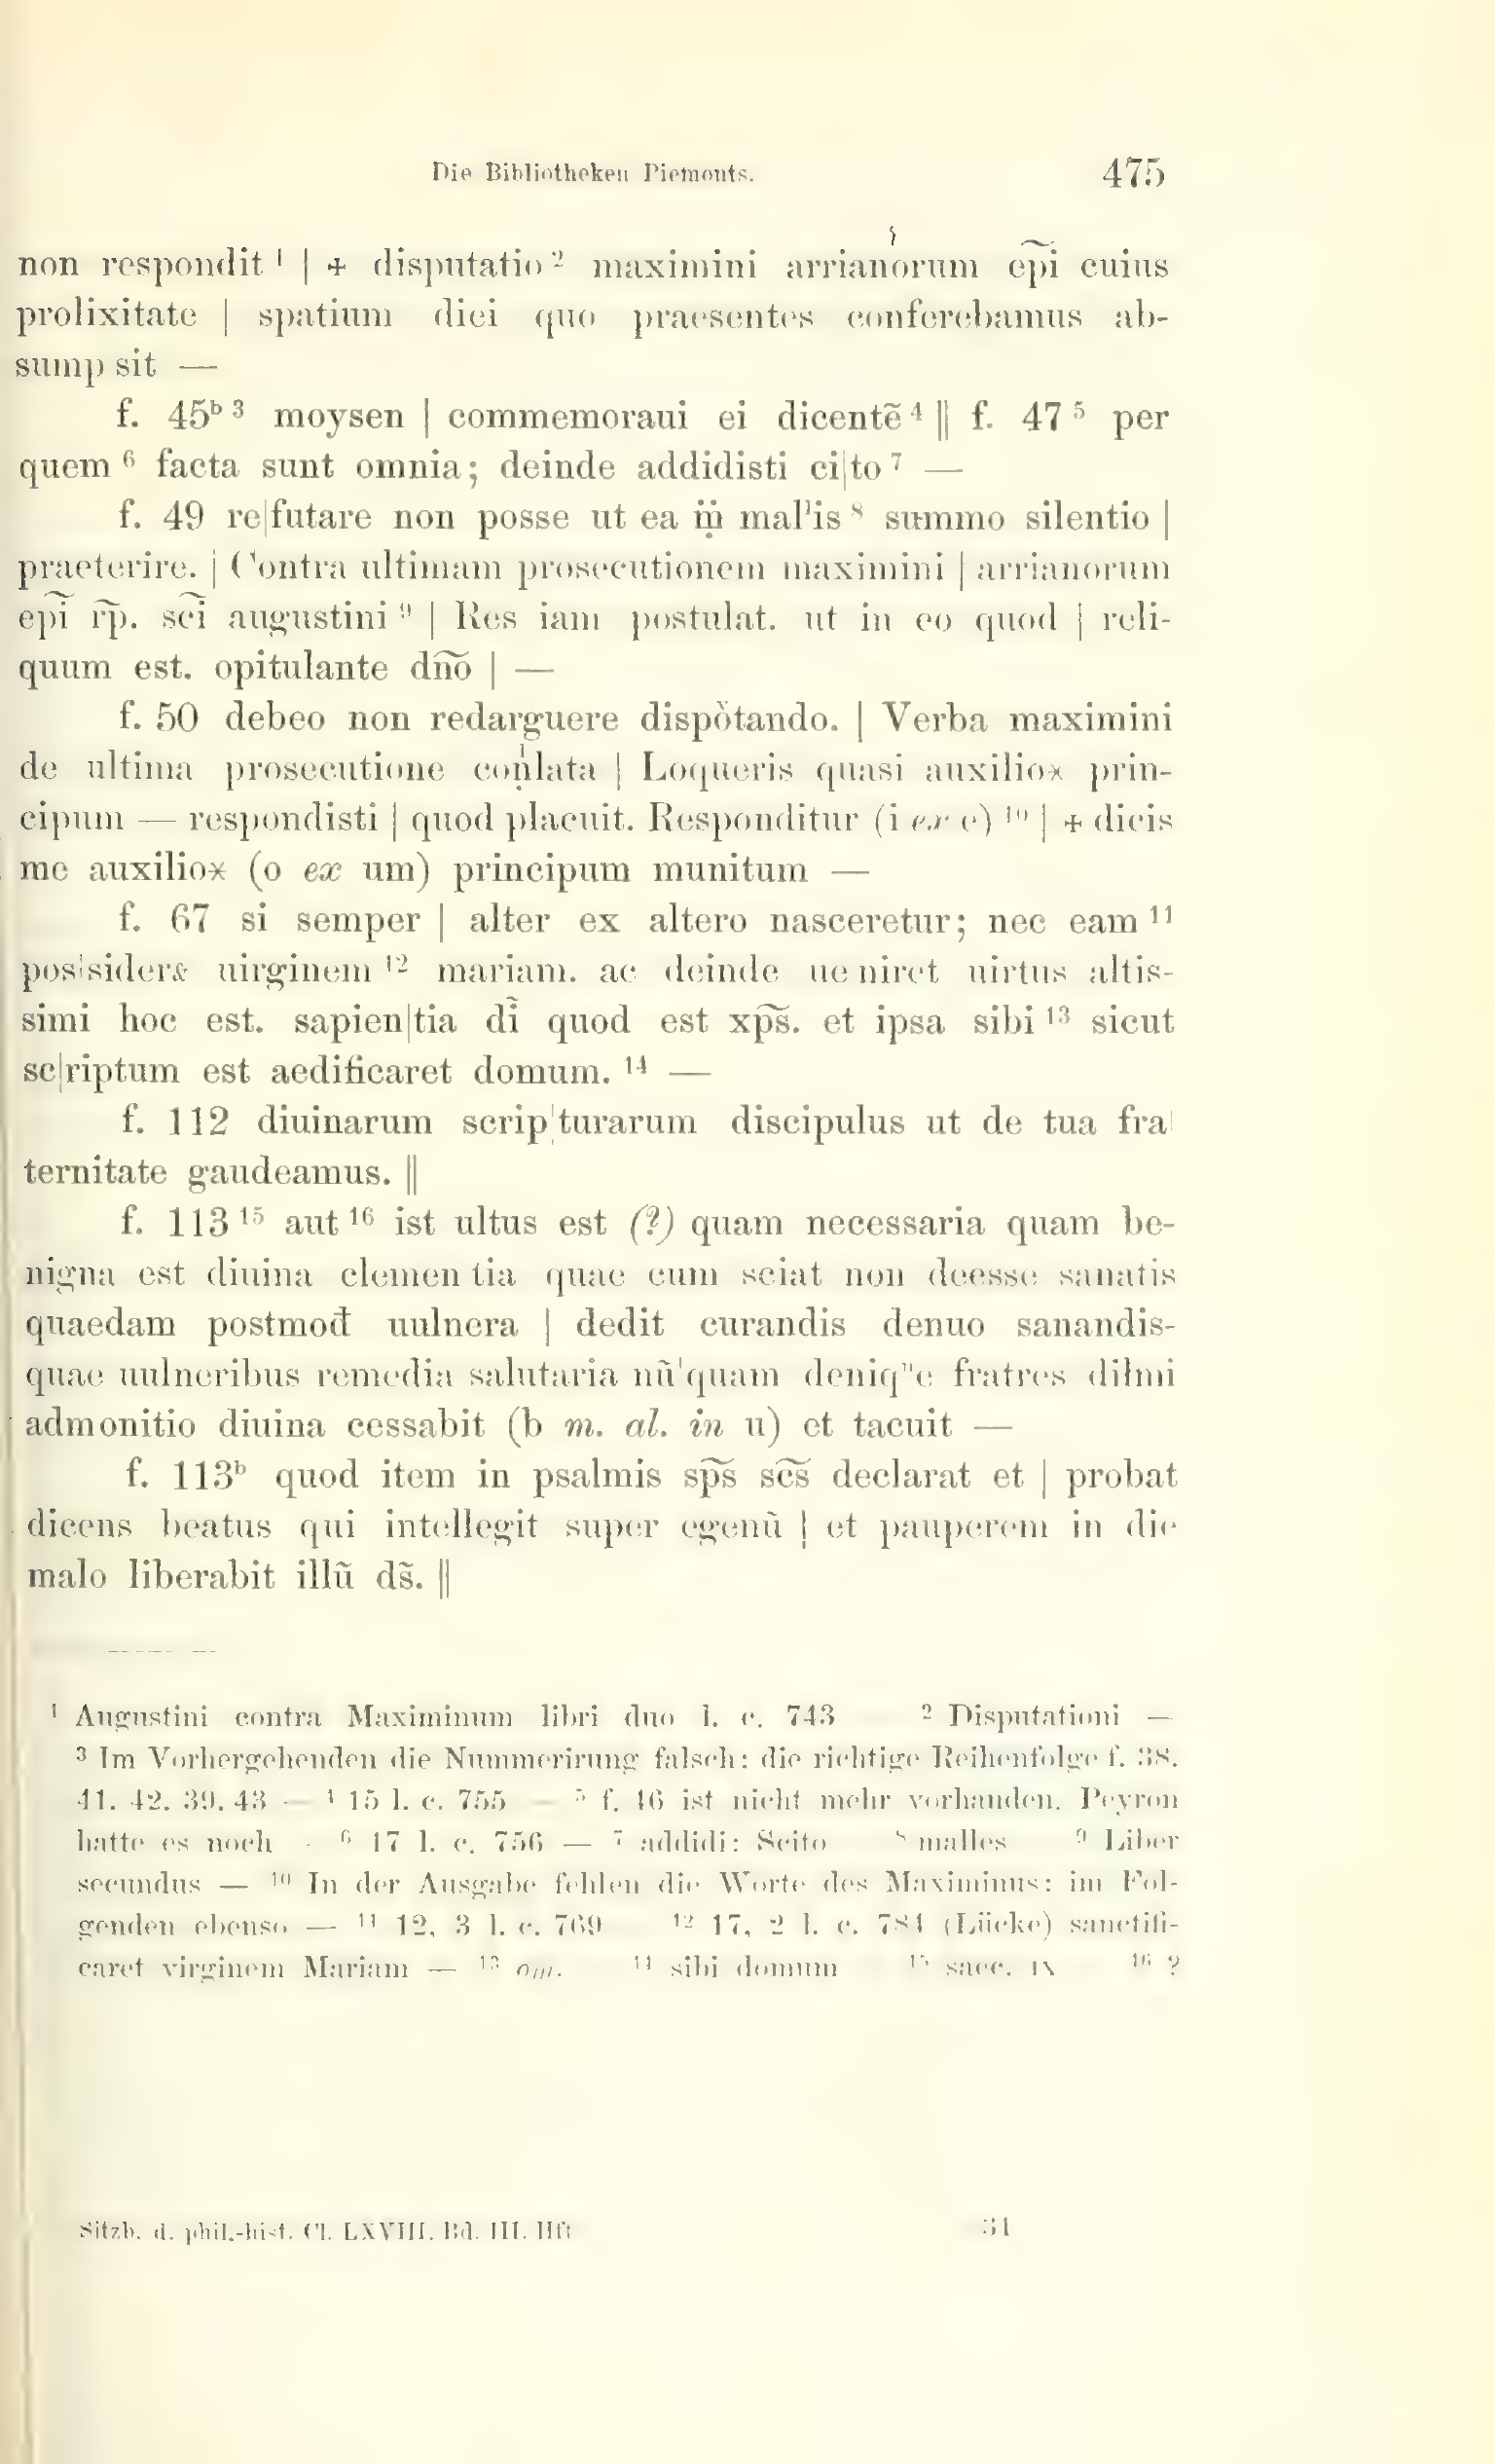 Die Bibliotheken Piemonts. 475
non respondit ¹ | + disputatio ² maximini arrianorum epĩ cuius
prolixitate | spatium diei quo praesentes conferebamus ab-
sump sit —
f. 45ᵇ ³ moysen | commemoraui ei dicentẽ ⁴ || f. 47 ⁵ per
quem ⁶ facta sunt omnia; deinde addidisti ci|to ⁷ —
f. 49 re|futare non posse ut ea ṃ̈ mal'is ⁸ summo silentio |
praeterire. | Contra ultimam prosecutionem maximini | arrianorum
epĩ rp̃. scĩ augustini ⁹ | Res iam postulat. ut in eo quod | reli-
quum est. opitulante dño | —
f. 50 debeo non redarguere dispòtando. | Verba maximini
de ultima prosecutione coṇlata | Loqueris quasi auxilio* prin-
cipum — respondisti | quod placuit. Responditur (i ex e) ¹⁰ | + dicis
me auxilio* (o ex um) principum munitum —
f. 67 si semper | alter ex altero nasceretur; nec eam ¹¹
pos|sider& uirginem ¹² mariam. ac deinde ue niret uirtus altis-
simi hoc est. sapien|tia dĩ quod est xp̃s. et ipsa sibi ¹³ sicut
sc|riptum est aedificaret domum. ¹⁴ —
f. 112 diuinarum scrip|turarum discipulus ut de tua fra|
ternitate gaudeamus. ||
f. 113 ¹⁵ aut ¹⁶ ist ultus est (?) quam necessaria quam be-
nigna est diuina clemen tia quae cum sciat non deesse sanatis
quaedam postmođ uulnera | dedit curandis denuo sanandis-
quae uulneribus remedia salutaria nũ|quam deniqᵘe fratres dilmi
admonitio diuina cessabit (b m. al. in u) et tacuit —
f. 113ᵇ quod item in psalmis sp̃s sc̃s declarat et | probat
dicens beatus qui intellegit super egenũ | et pauperem in die
malo liberabit illũ ds̃. ||
¹ Augustini contra Maximinum libri duo l. c. 743 ² Disputationi —
³ Im Vorhergehenden die Nummerirung falsch: die richtige Reihenfolge f. 38.
41. 42. 39. 43 — ⁴ 15 l. c. 755 — ⁵ f. 46 ist nicht mehr vorhanden. Peyron
hatte es noch - ⁶ 17 l. c. 756 — ⁷ addidi: Scito ⁸ malles ⁹ Liber
secundus — ¹⁰ In der Ausgabe fehlen die Worte des Maximinus: im Fol-
genden ebenso — ¹¹ 12, 3 l. c. 769 ¹² 17, 2 l. c. 784 (Lücke) sanctifi-
caret virginem Mariam — ¹³ om. ¹⁴ sibi domum ¹⁵ saec. IX ¹⁶ ?
Sitzb. d. phil.-hist. Cl. LXVIII. Bd. III. Hft 31